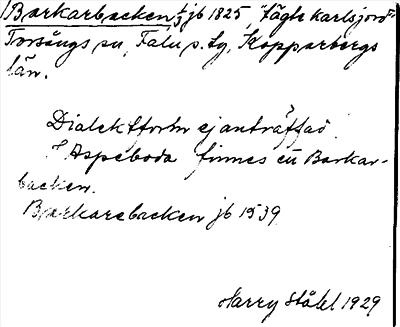 Barkarbacken, 1/3 jb 1825, "fägte karlsjord"
Torsångs sn, Falu s. tg, Kopparbergs
län.
Dialektform ej anträffad.
I Aspeboda finnes en Barkar-
backen.
Barkarebacken jb 1539
Harry Ståhl 1929